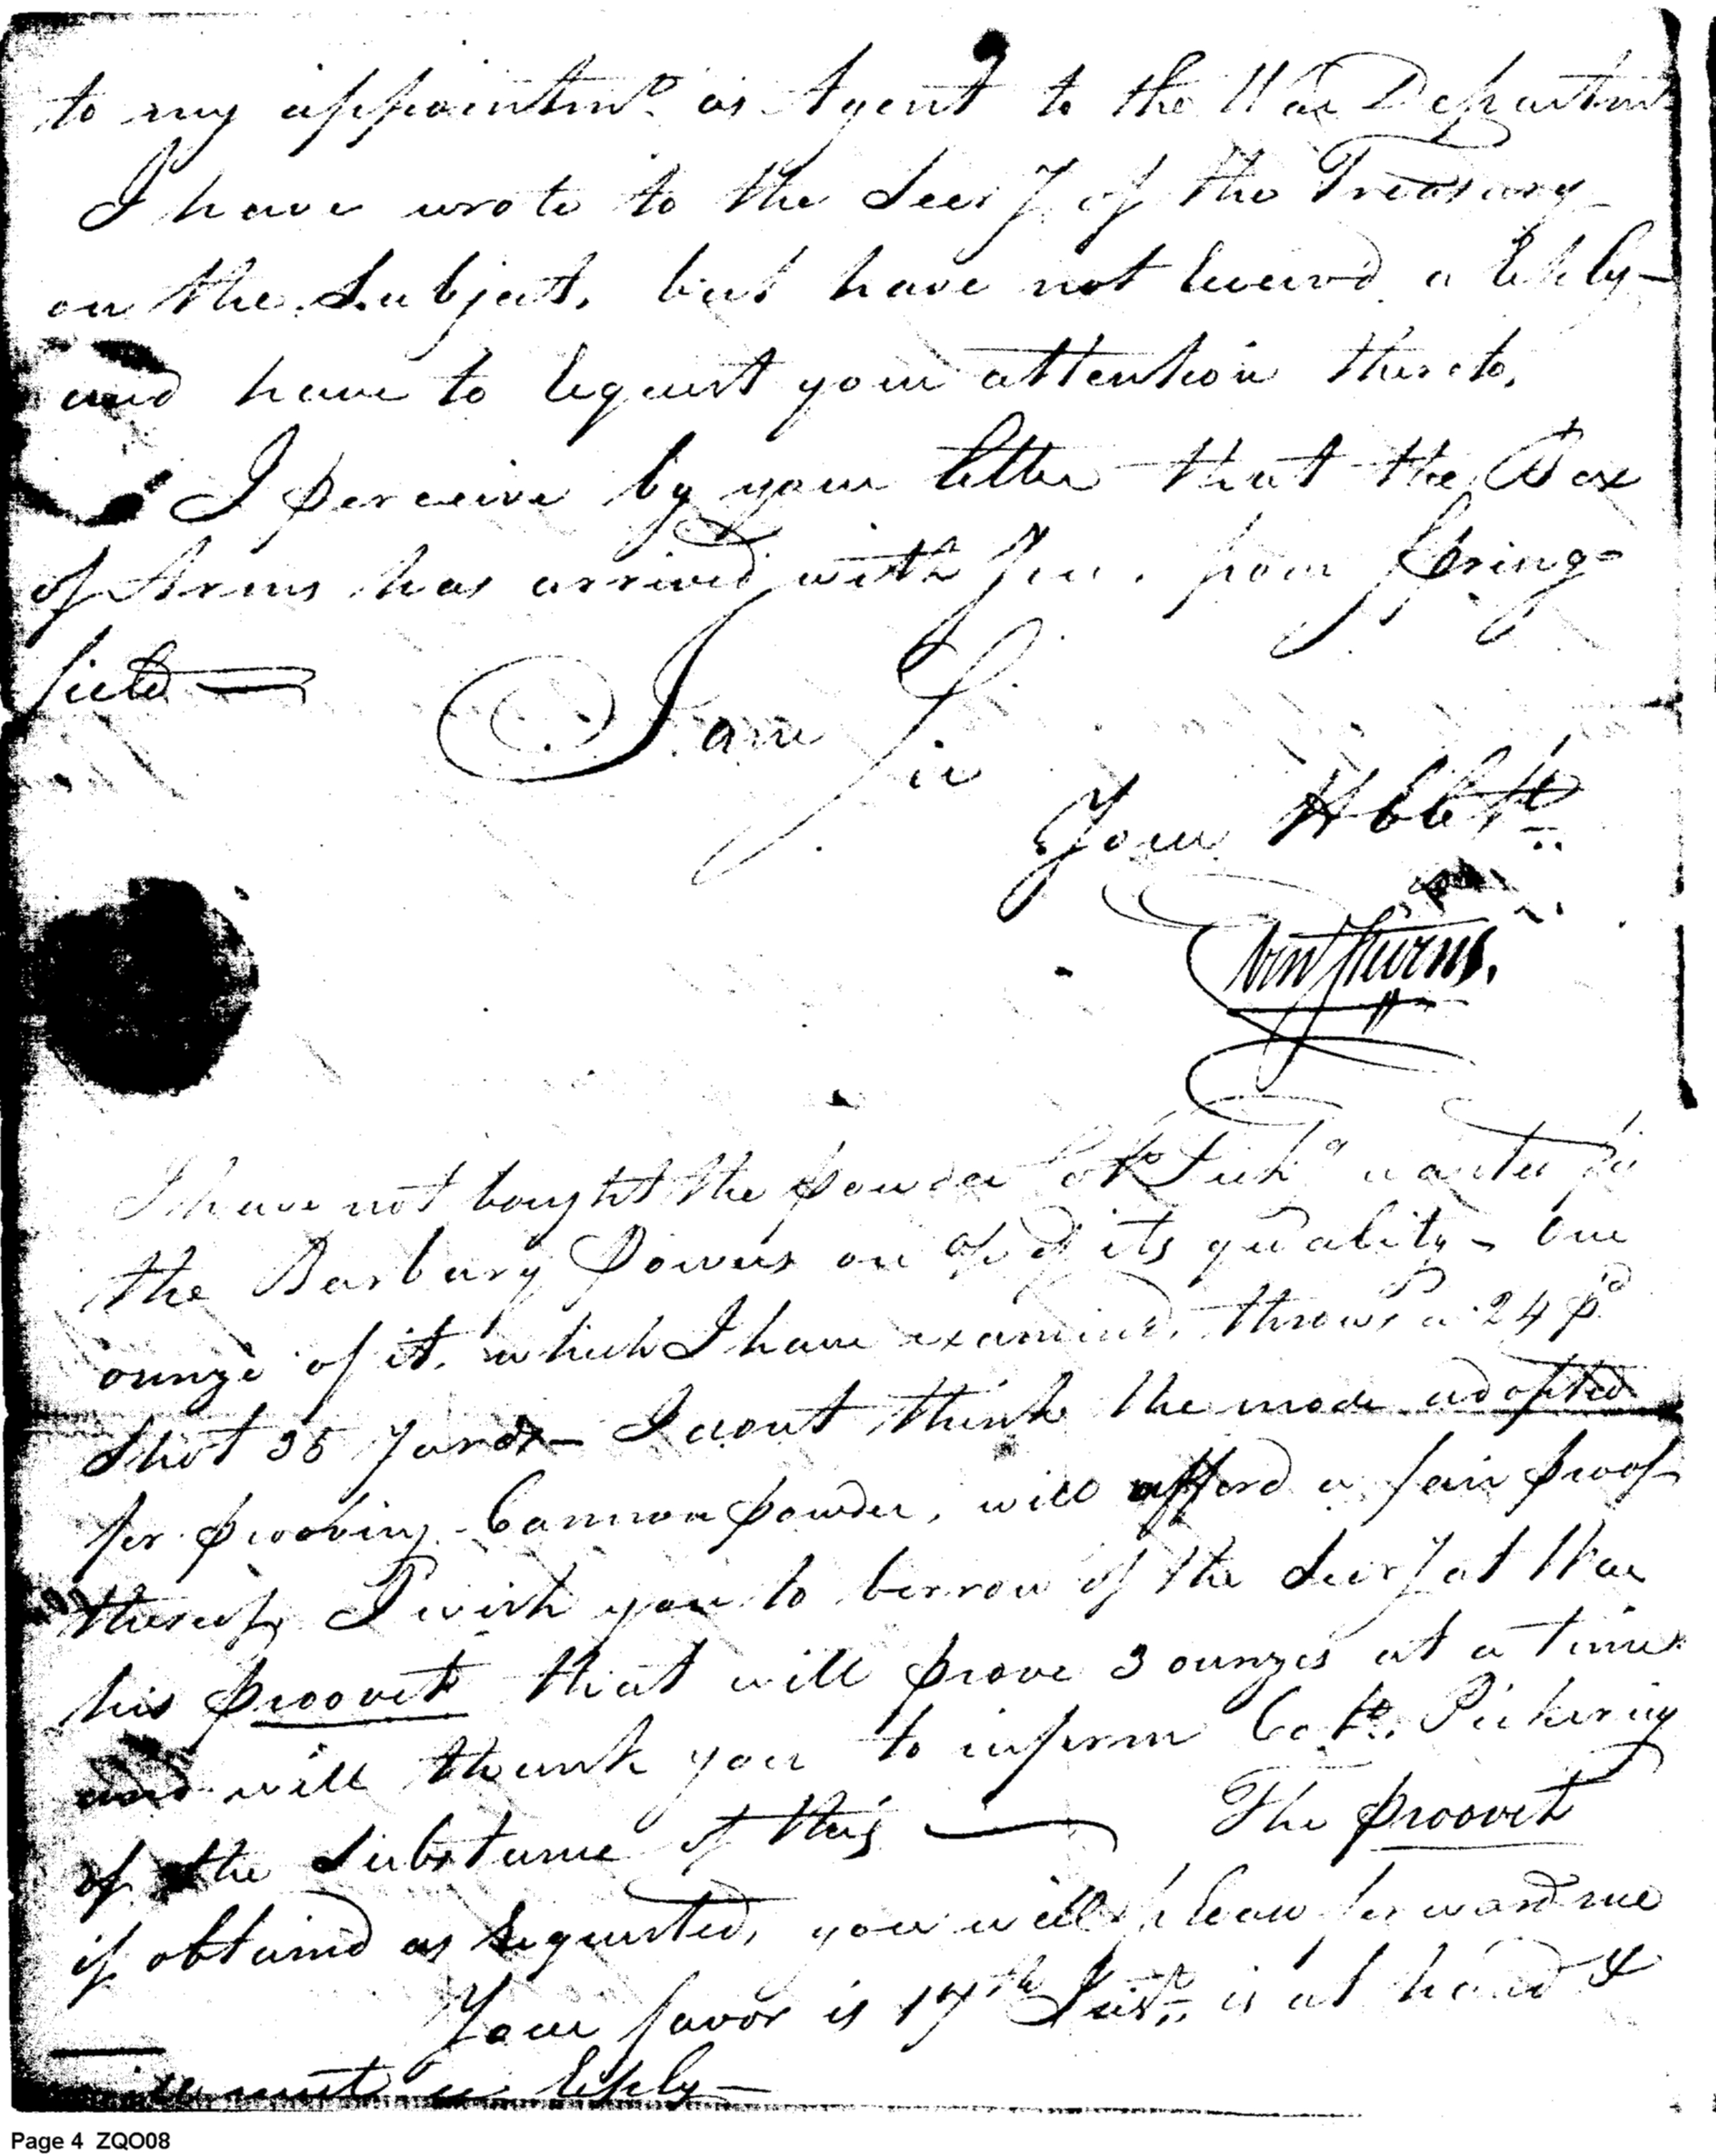 to my appointmt. as Agent to the War Departmt
I have wrote to the Secry of the Treasury
on the Subject, but have not receivd a reply—
and have to request your attention thereto.
I perceive by your letter that the Box
of Arms has arrived with you, from Spring=
field—
I am Sir
Your Hbl St
Eben Stevens.
I have not bought the powder Coll. Pick wanted for
the Barbary Powers on acct of its quality— One
ounze of it, which I have examined, throws a 24 pd
Shot 35 Yards— I dont think the mode adopted
for prooving Cannon powder, will afford a fair proof
thereof, I wish you to borrow of the Secry at War
his proovet that will prove 3 ounzes at a time
and will thank you to inform Coll. Pickering
of the Substance of this — The proovet
if obtained as requested, you will please forward me
Your favor is 17th Inst. is at hand &
a reply—
Page 4 ZQO08